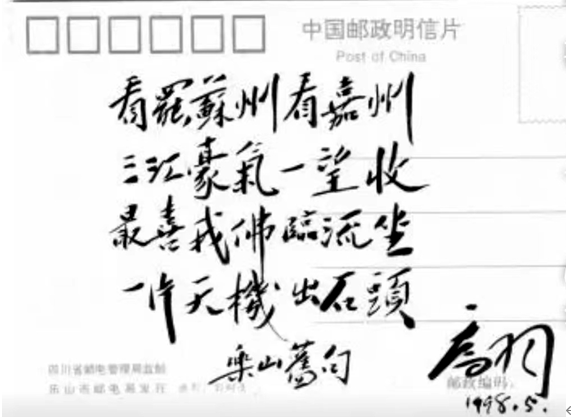 中国邮政明信片
Post of China
看罷蘇州看嘉州
三江豪氣一望收
最喜我佛臨流坐
一片天機出石頭
樂山舊句
高羽
1998.5.
四川省邮电管理局监制
乐山市邮电局发行
邮政编码: